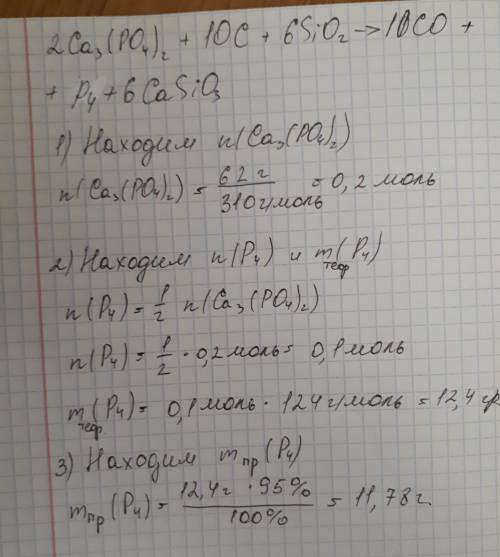 2Ca₃(PO₄)₂ + 10C + 6SiO₂ → 10CO +
+ P₄ + 6CaSiO₃
1) Находим n(Ca₃(PO₄)₂)
n(Ca₃(PO₄)₂) = 62 г / 310 г/моль = 0,2 моль
2) Находим n(P₄) и m теор (P₄)
n(P₄) = 1/2 n(Ca₃(PO₄)₂)
n(P₄) = 1/2 · 0,2 моль = 0,1 моль
m теор (P₄) = 0,1 моль · 124 г/моль = 12,4 гр
3) Находим m пр (P₄)
m пр (P₄) = 12,4 г · 95% / 100% = 11,78 г.